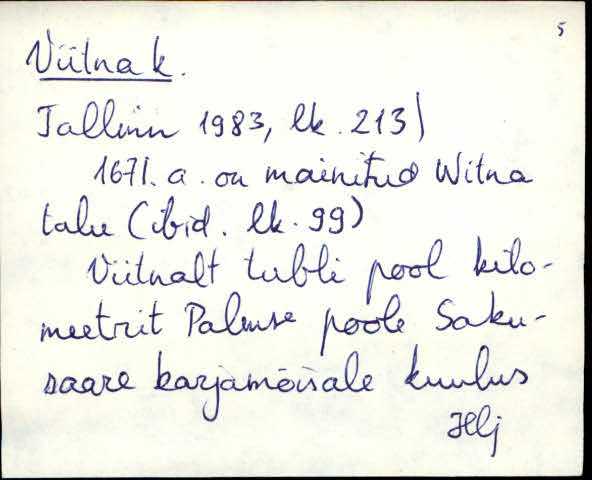 5
Viitna k.
Tallinn 1983, lk. 213)
1671. a. on mainitud Witna
talu (ibid. lk. 99)
Viitnalt tubli pool kilo-
meetrit Palmse poole Saku-
saare karjamõisale kuulus
Hlj